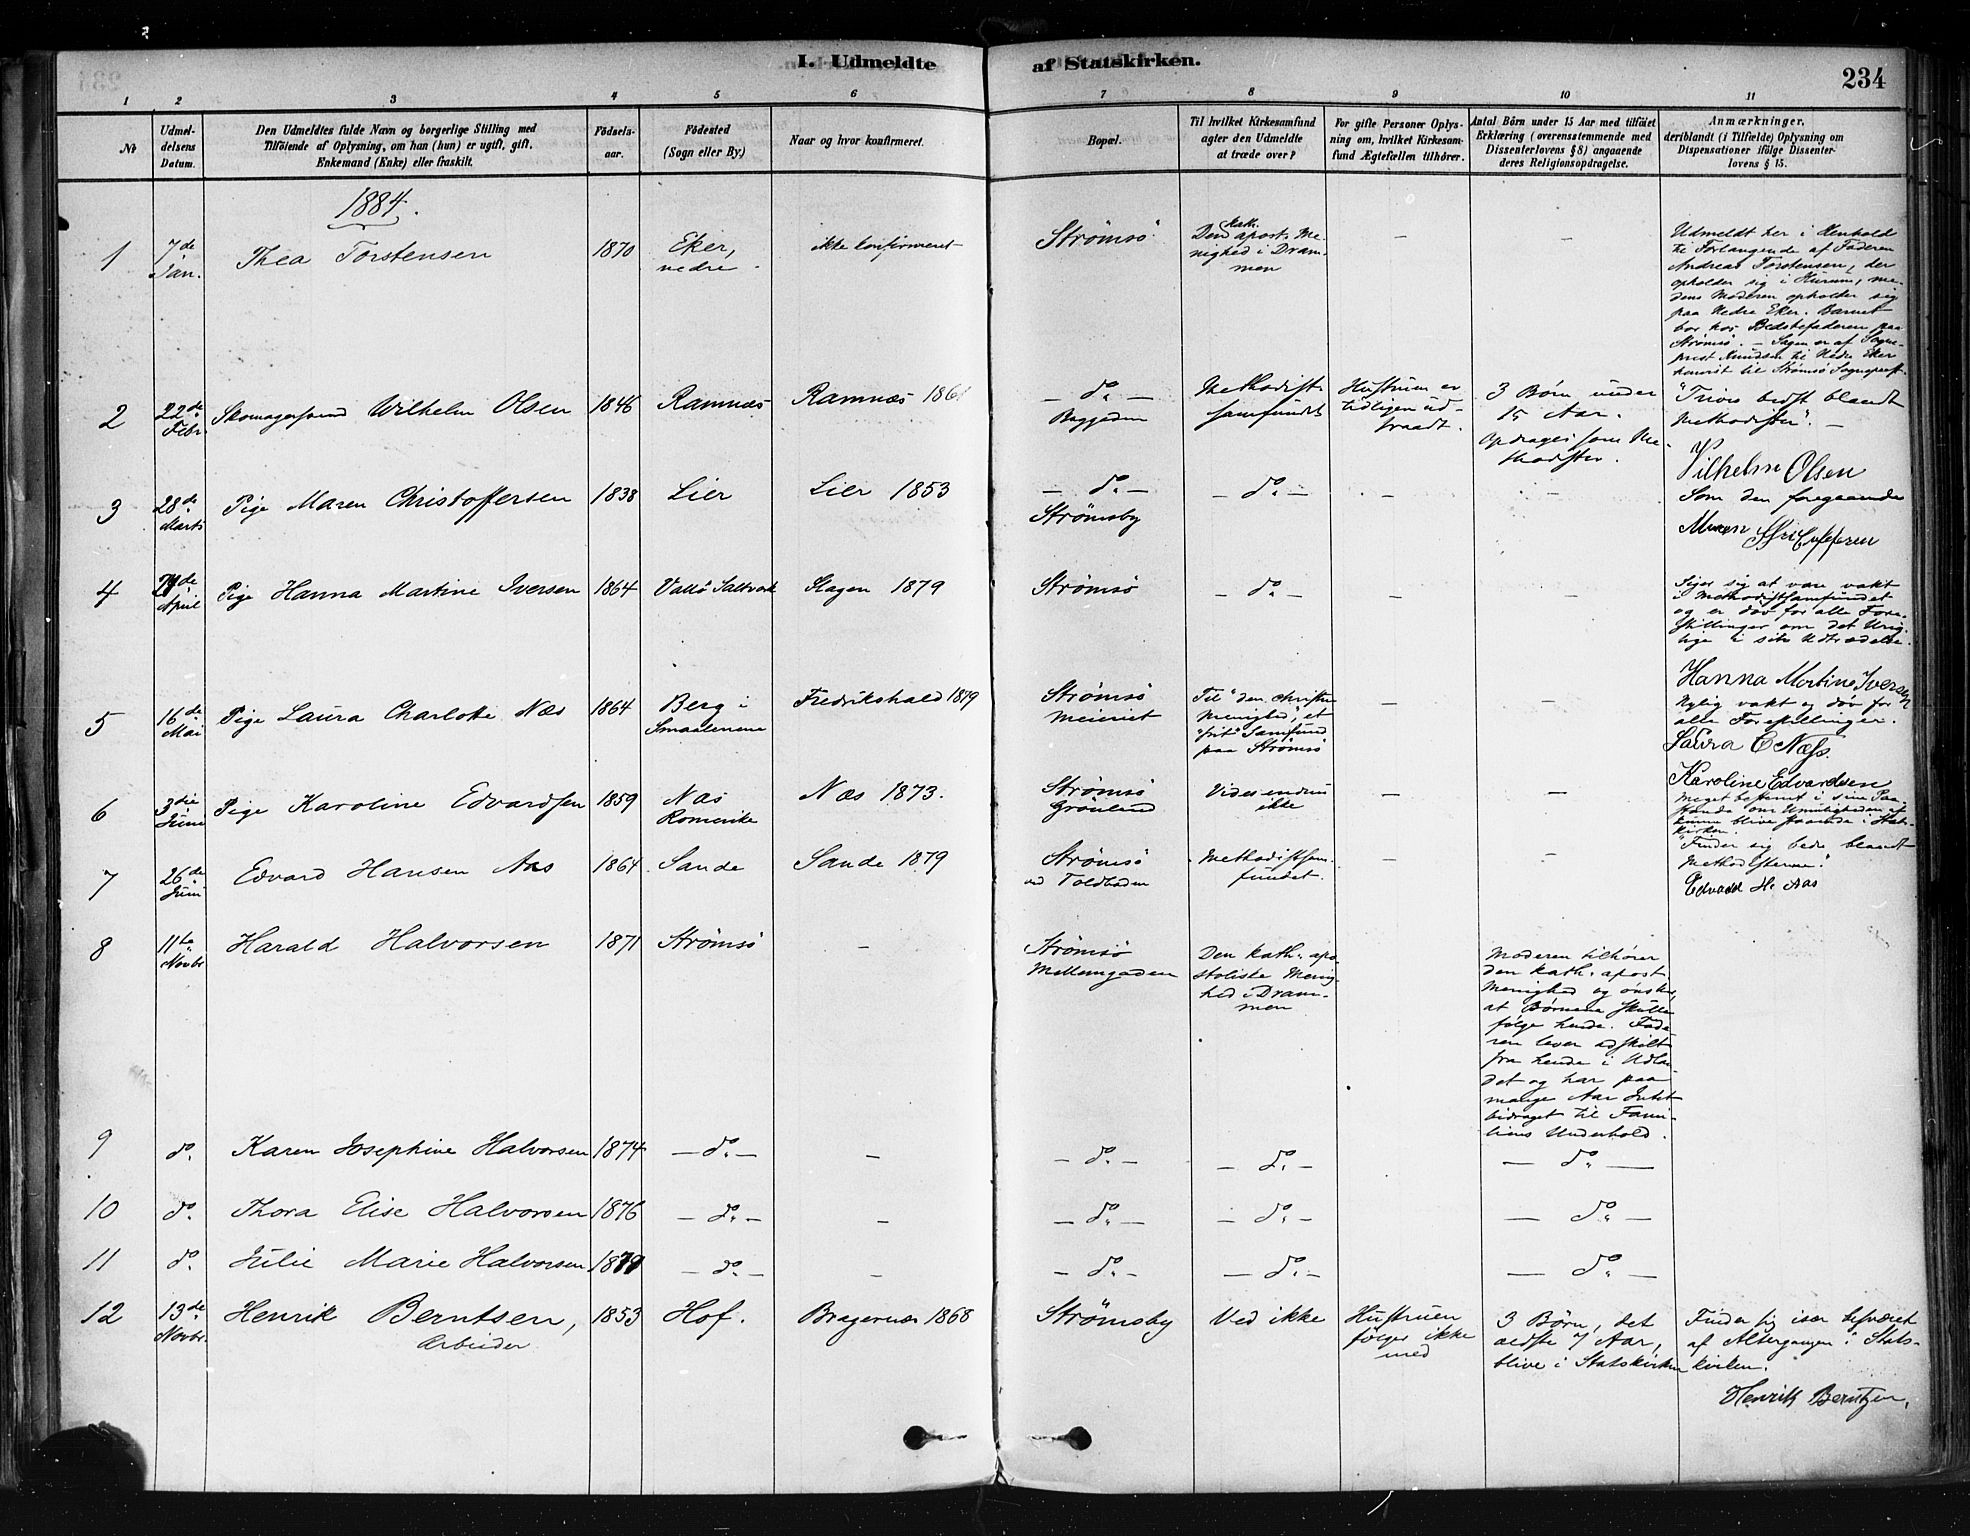 I. Udmeldte af Statskirken.
234
1 2 3 4 5 6 7 8 9 10 11
No
Udmel-
delsens
Datum.
Den Udmeldtes fulde Navn og borgerlige Stilling med
Tilföiende af Oplysning, om han (hun) er ugift, gift,
Enkemand (Enke) eller fraskilt.
Födsels-
aar.
Födested
(Sogn eller By.)
Naar og hvor konfirmeret.
Bopæl.
Til hvilket Kirkesamfund
agter den Udmeldte
at træde over?
For gifte Personer Oplys-
ning om, hvilket Kirkesam-
fund Ægtefællen tilhörer.
Antal Börn under 15 Aar med tilföiet
Erklæring (overensstemmende med
Dissenterlovens § 8) angaaende
deres Religionsopdragelse.
Anmærkninger,
deriblandt (i Tilfælde) Oplysning om
Dispensationer ifölge Dissenter-
lovens § 15.
1884.
1
7de
Jan.
Thea Torstensen
1870
Eker,
nedre.
ikke konfirmeret
Strömsö
Den kath. apost. Me-
nighed i Dram-
men
—
—
Udmeldt her i Henhold
til Forlangende af Faderen
Andreas Torstensen, der
opholder sig i Hurum, me-
dens Moderen opholder sig
paa Nedre Eker. Barnet
bor hos Bedstefaderen paa
Strömsö. — Sagen er af Sogne-
prest Knudsen til Nedre Eker
henvist til Strömsö Sognepræst.
2
22de
Febr.
Skomagersvend Wilhelm Olsen
1846
Ramnæs
Ramnæs 1861
— do —
Byggaden
Methodist-
samfundet
Hustruen er
tidligen ud-
traadt.
3 Børn under
15 Aar.
Opdrages som Me-
thodister.
"Trives bedst blandt
Methodister". —
Vilhelm Olsen
3
28de
Marts
Pige Maren Christoffersen
1838
Lier
Lier 1853
— do —
Strömsby
— do —
—
—
Som den foregaaende
Maren
4
April
Pige Hanna Martine Iversen
1864
Vallö Saltverk
Slagen 1879
Strömsö
— do —
—
—
Siger sig at være vakt
i Methodistsamfundet
og er döv for alle Fore-
stillinger om det Urig-
tige i sit Udtrædelse.
Hanna Martine Iversen
5
16de
Mai
Pige Laura Charlotte Næs
1864
Berg i
Smaalenene
Fredrikshald 1879
Strömsö
Meieriet
Til "den christne
Menighed", et
"frit" Samfund
paa Strömsö
—
—
Nylig vakt og döv for
alle Forestillinger.
Laura C Næss.
6
3die
Juni
Pige Karoline Edvardsen
1859
Næs
Romerike
Næs 1873.
Strömsö
Grönland
Vides endnu
ikke
—
—
Karoline Edvardsen
Meget bestemt i sin Paa-
stand om Umuligheden af
kunne blive staaende i Stats-
kirken.
7
26de
Juni
Edvard Hansen Aas
1864
Sande
Sande 1879
Strömsö
ved Toldboden
Methodistsam-
fundet.
—
—
"Finder sig bedre blandt
Methodisterne".
Edvard H. Aas
8
11te
Novbr
Harald Halvorsen
1871
Strømsö
—
Strömsö
Mellemgaden
Den kath. apo-
stoliske Menig-
hed i Dram-
men
Moderen tilhører
den kath. apost.
Menighed og önsker,
at Børnene skulle
følge hende. Fade-
ren lever adskilt
fra hende i Udlan-
det og har paa
mange Aar Intet
bidraget til Fami-
liens Underhold.
9
do.
Karen Josephine Halvorsen
1874
— do —
—
— do —
— do —
— do —
10
do.
Thora Elise Halvorsen
1876
— do —
—
— do —
— do —
— do —
11
do.
Julie Marie Halvorsen
1879
— do —
—
— do —
— do —
— do —
12
13de
Novbr.
Henrik Berntsen,
Arbeider
1853
Hof.
Bragernæs 1868
Strömsby
Ved ikke
Hustruen
følger ikke
med
3 Børn, det
ældste 7 Aar,
blive i Statskirken
Finder sig især besværet
af Altergangen i Stats-
kirken.
Henrik Berntzen,